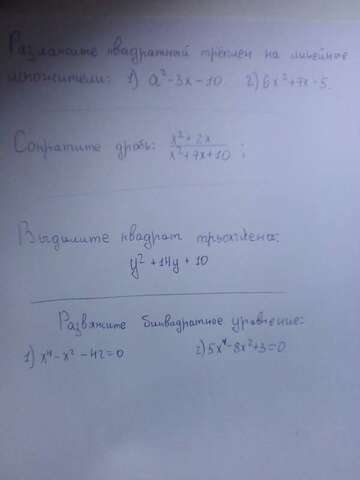 Разложите квадратный трёхлен на линейные
множители: 1) a²-3x-10 2) 6x²+7x-5.
Сократите дробь: x²+2x / x²+7x+10 ;
Выдилите квадрат трьохчлена:
y²+14y+10
Развяжите биквадратное уровнение:
1) x⁴-x²-42=0 2) 5x⁴-8x²+3=0